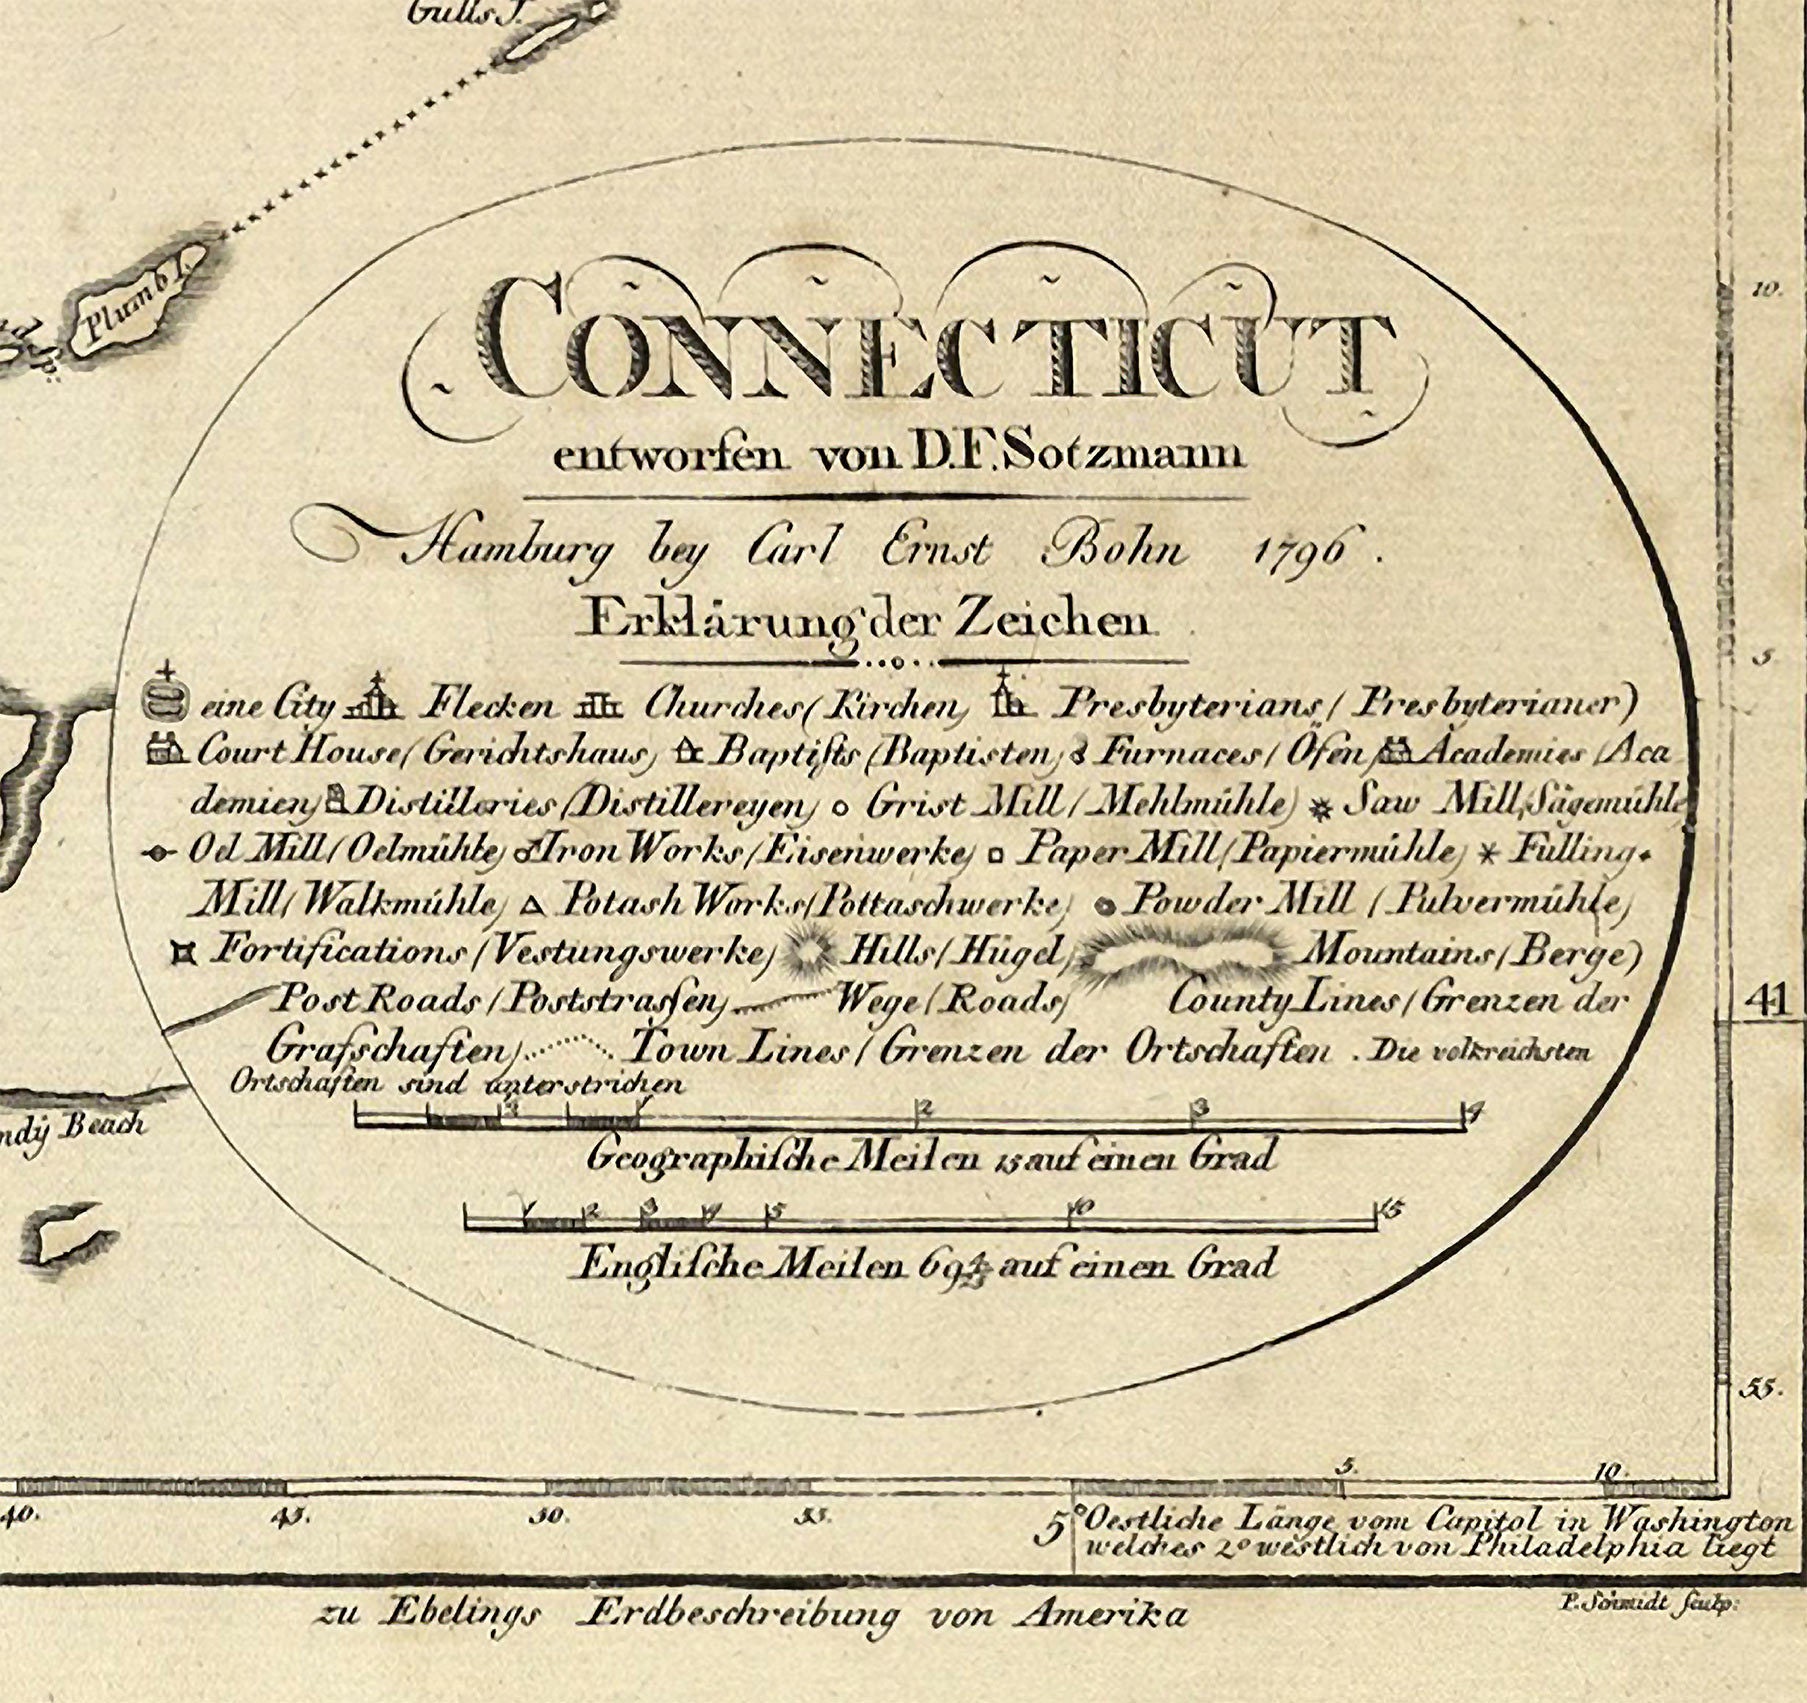 Gulls I.
Plumb I.
CONNECTICUT
entworfen von D.F. Sotzmann
Hamburg bey Carl Ernst Bohn 1796.
Erklärung der Zeichen
eine City Flecken Churches (Kirchen) Presbyterians (Presbyterianer)
Court House (Gerichtshaus) Baptiſts (Baptisten) Furnaces (Öfen) Academies (Aca
demien) Distilleries (Distillereyen) Grist Mill (Mehlmühle) Saw Mill (Sägemühle
Oel Mill (Oelmühle) Iron Works (Eisenwerke) Paper Mill (Papiermühle) Fulling
Mill (Walkmühle) Potash Works (Pottaschwerke) Powder Mill (Pulvermühle)
Fortifications (Vestungswerke) Hills (Hügel) Mountains (Berge)
Post Roads (Poststraſsen) Wege (Roads) County Lines (Grenzen der
Grafschaften) Town Lines (Grenzen der Ortschaften. Die volkreichsten
Ortschaften sind unterstrichen
1 2 3 4
Geographiſche Meilen 15 auf einen Grad
1 2 3 4 5 10 15
Engliſche Meilen 69 auf einen Grad
ndÿ Beach
10.
5
41
55.
5. 10.
40. 45. 50. 55. 5° Oestliche Länge vom Capitol in Washington
welches 2° westlich von Philadelphia liegt
zu Ebelings Erdbeschreibung von Amerika
P. Schmidt ſculp: